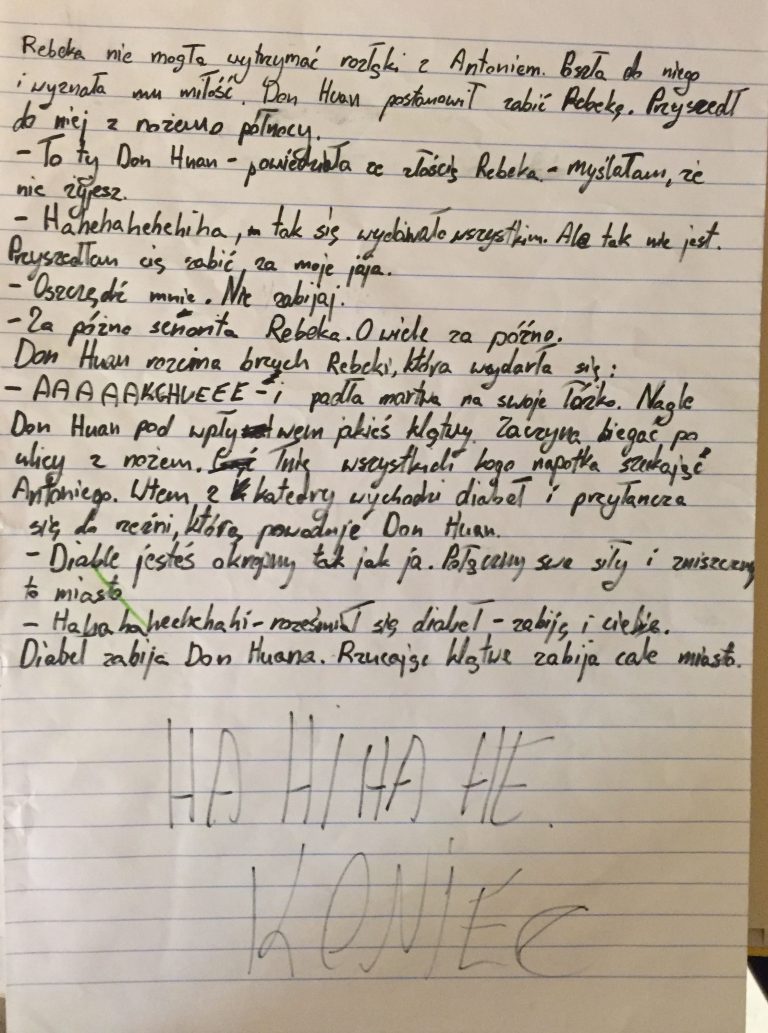 Rebeka nie mogła wytrzymać rozłąki z Antoniem. Poszła do niego
i wyznała mu miłość. Don Huan postanowił zabić Rebekę. Przyszedł
do niej z nożem o północy.
- To ty Don Huan - powiedziała ze złością Rebeka - myślałam, że
nie żyjesz.
- Hahehahehehiha, tak się wydawało wszystkim. Ale tak nie jest.
Przyszedłam cię zabić za moje jaja.
- Oszczędź mnie. Nie zabijaj.
- Za późno señorita Rebeka. O wiele za późno.
Don Huan rozcina brzuch Rebeki, która wydarła się:
- AAAAAKGHUEEE - i padła martwa na swoje łóżko. Nagle
Don Huan pod wpływem jakiejś klątwy. Zaczyna biegać po
ulicy z nożem. Tnie wszystkich kogo napotka szukając
Antoniego. Wtem z katedry wychodzi diabeł i przyłancza
się do rzeźni, którą powoduje Don Huan.
- Diable jesteś okrojny tak jak ja. Połączmy swe siły i zniszczmy
to miasto
- Hahahahechchahi - roześmiał się diabeł - zabiję i ciebie.
Diabeł zabija Don Huana. Rzucając klątwę zabija całe miasto.
HA HI HA HE.
KONIEC